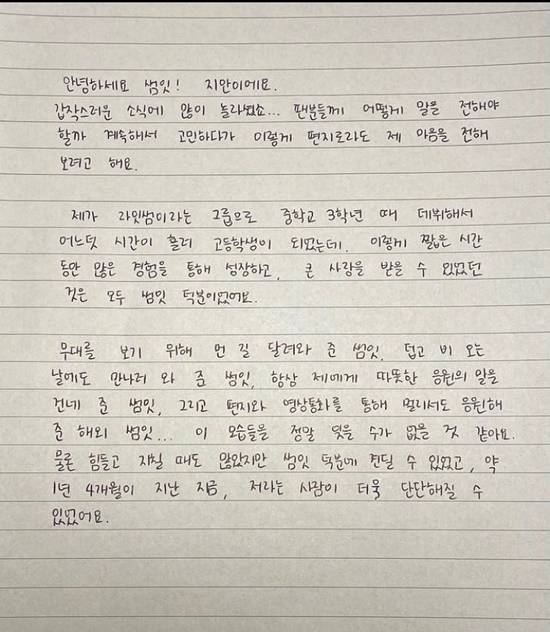 안녕하세요 썸잇! 지안이에요.
갑작스러운 소식에 많이 놀라셨죠... 팬분들께 어떻게 말을 전해야
할까 계속해서 고민하다가 이렇게 편지로라도 제 마음을 전해
보려고 해요.
제가 라잇썸이라는 그룹으로 중학교 3학년 때 데뷔해서
어느덧 시간이 흘러 고등학생이 되었는데, 이렇게 짧은 시간
동안 많은 경험을 통해 성장하고, 큰 사랑을 받을 수 있었던
것은 모두 썸잇 덕분이었어요.
무대를 보기 위해 먼 길 달려와 준 썸잇, 덥고 비 오는
날에도 만나러 와 준 썸잇, 항상 제에게 따뜻한 응원의 말을
건네 준 썸잇, 그리고 편지와 영상통화를 통해 멀리서도 응원해
준 해외 썸잇... 이 모습들을 정말 잊을 수가 없을 것 같아요.
물론 힘들고 지칠 때도 많았지만 썸잇 덕분에 견딜 수 있었고, 약
1년 4개월이 지난 지금, 저라는 사람이 더욱 단단해질 수
있었어요.